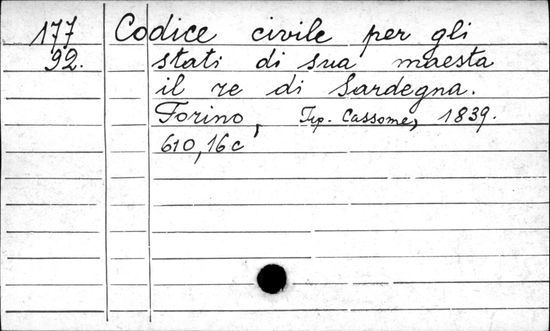 177 Codice civile per gli
92. stati di sua maesta
il re di Sardegna.
Torino, Tip. Cassome, 1839.
610,16 c